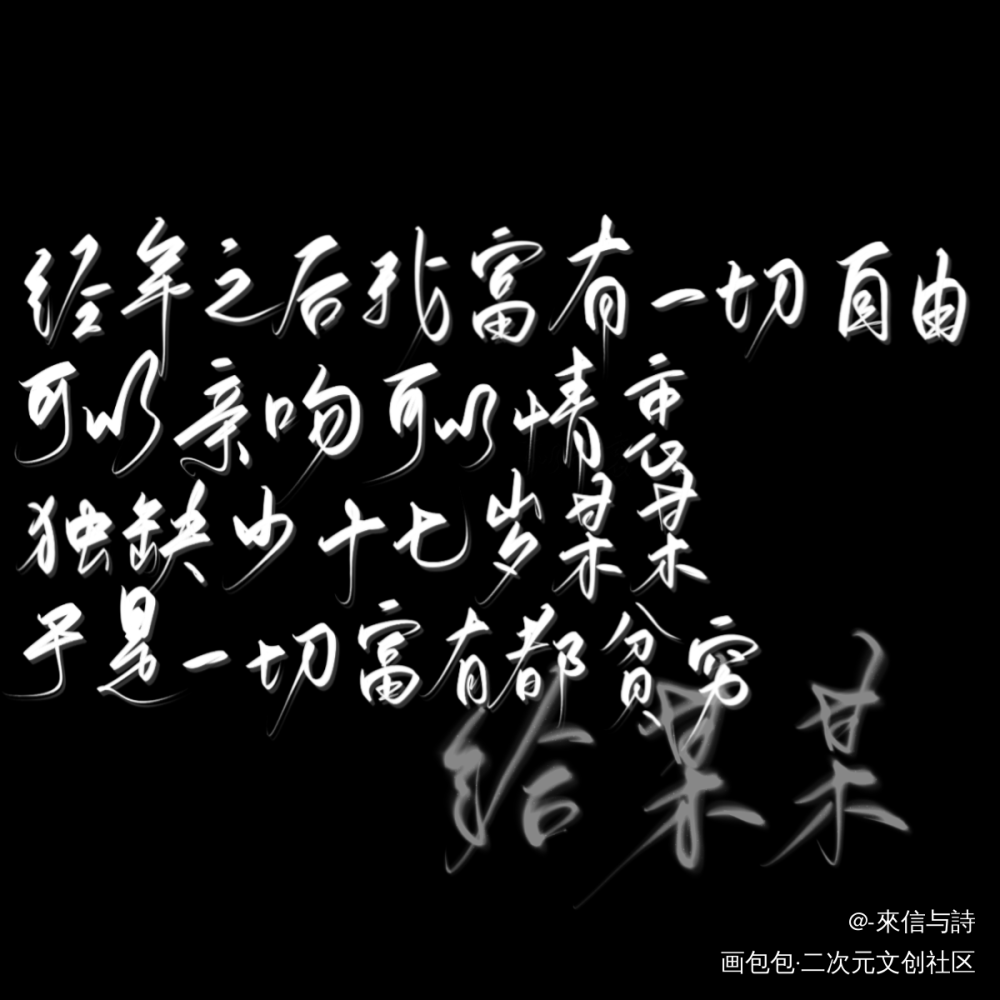 经年之后我富有一切自由
可以亲吻可以情恋
独缺少十七岁某某
于是一切富有都贫穷
给某某
@-來信与詩
画包包·二次元文创社区